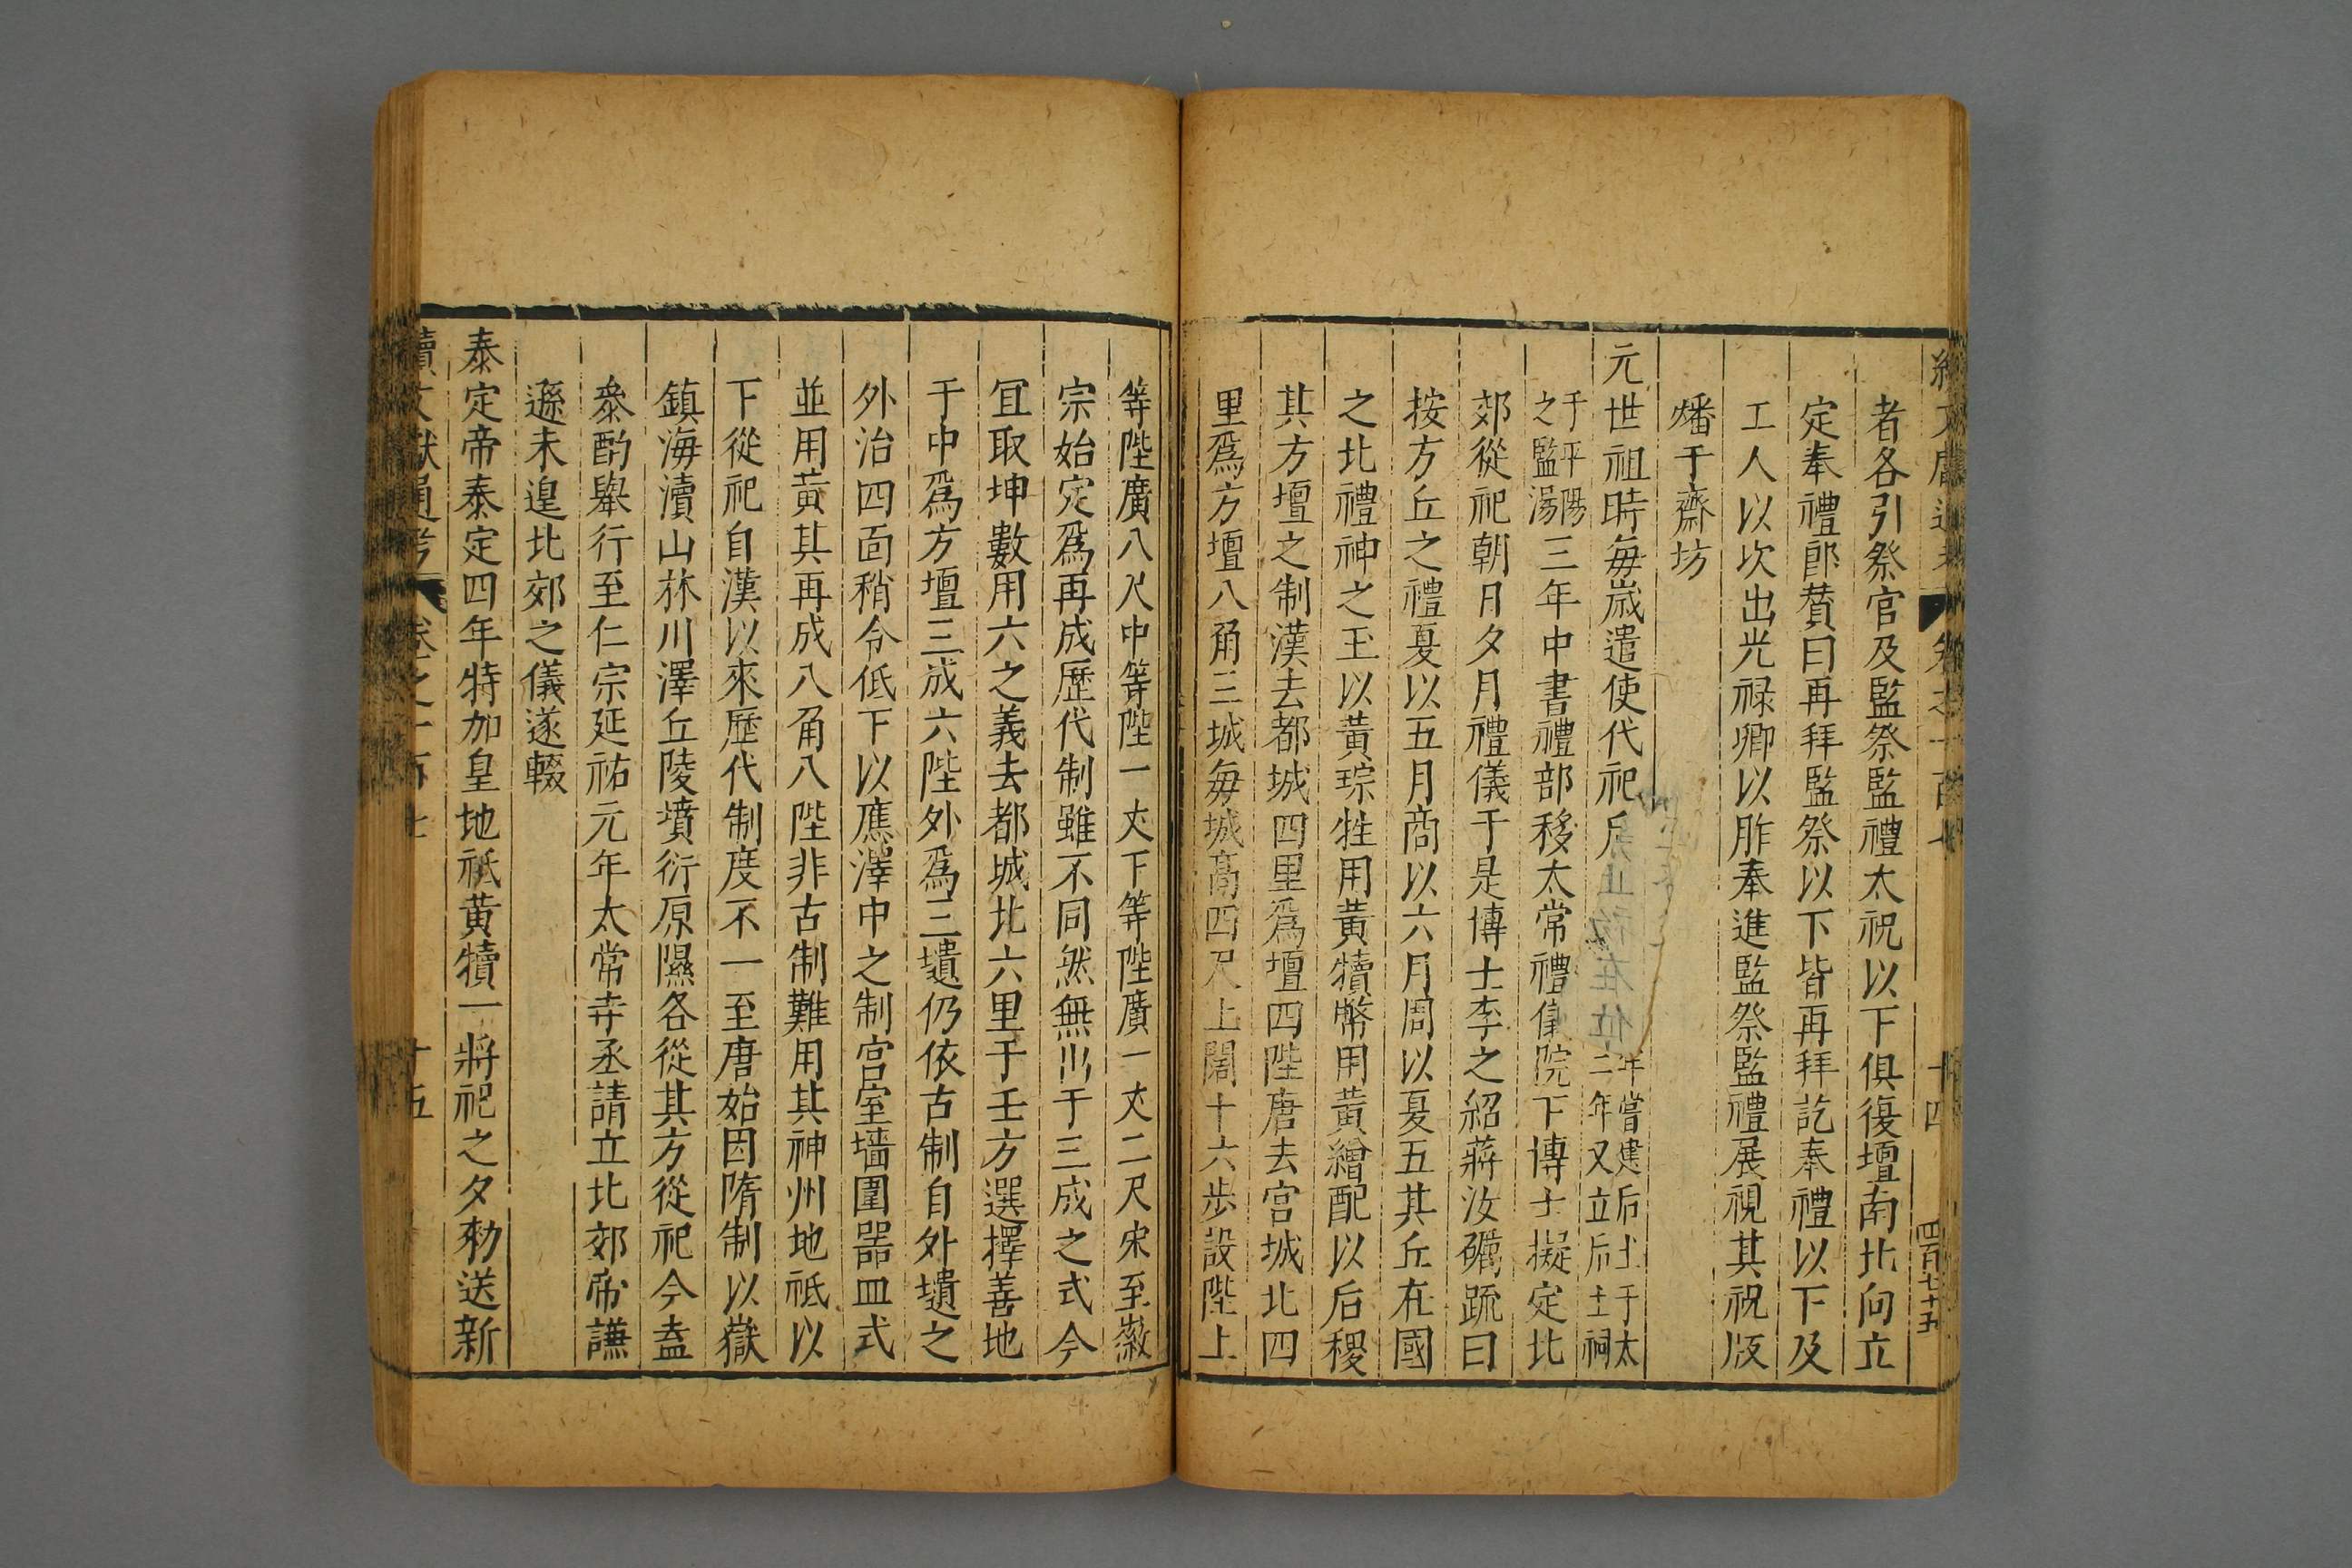 者各引祭官及監祭監禮太祝以下俱復壇南北向立
定奉禮郎賛曰再拜監祭以下皆再拜訖奉禮以下及
工人以次出光禄卿以胙奉進監祭監禮展視其祝版
燔于齋坊
元世祖時每嵗遣使代祀后
年嘗建后土于太
二年又立后土祠
于平陽
之監湯
三年中書禮部移太常禮儀院下博士擬定北
郊從祀朝日夕月禮儀于是博士李之紹蔣汝礪疏曰
按方丘之禮夏以五月商以六月周以夏五其丘在國
之北禮神之玉以黃琮牲用黃犢幣用黃繒配以后稷
其方壇之制漢去都城四里爲壇四陛唐去宫城北四
里爲方壇八角三城每城高四尺上闊十六步設陛上
等陛廣八尺中等陛一丈下等陛廣一丈二尺宋至徽
宗始定爲再成歷代制雖不同然無出于三成之式今
冝取坤數用六之義去都城北六里于壬方選擇善地
于中爲方壇三成六陛外爲三壝仍依古制自外壝之
外治四面稍令低下以應澤中之制宫室墻圍器皿式
並用黃其再成八角八陛非古制難用其神州地祗以
下從祀自漢以來歷代制度不一至唐始因隋制以嶽
鎮海瀆山林川澤丘陵墳衍原隰各從其方從祀今盍
叅酌舉行至仁宗延祐元年太常寺丞請立北郊帝謙
遜未遑北郊之儀遂輟
泰定帝泰定四年特加皇地祇黃犢一將祀之夕勑送新
續文獻通考
卷之一百七
十四
四百七十五
十五